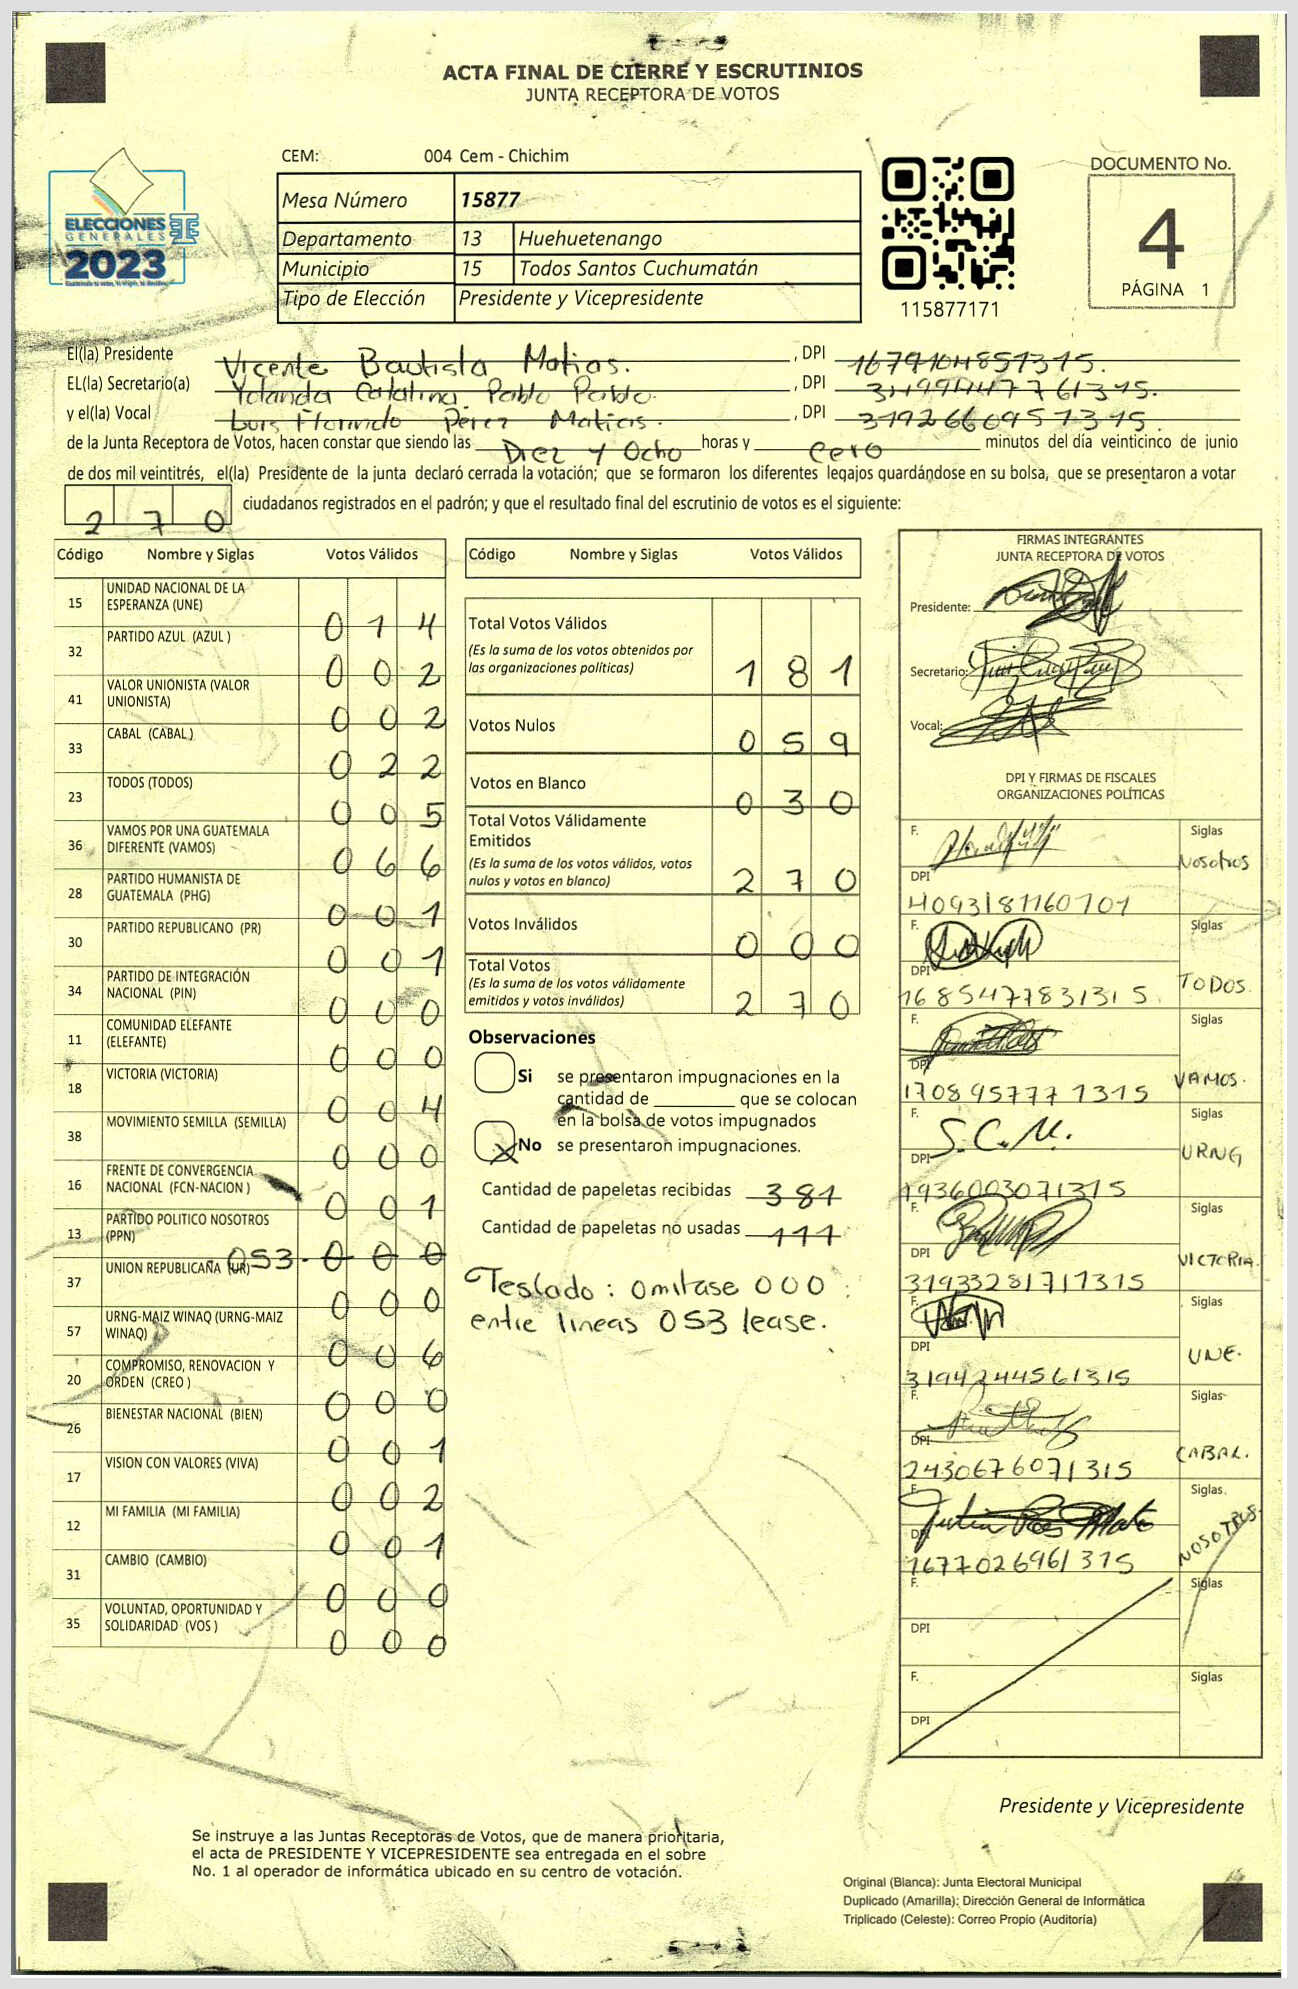 ACTA FINAL DE CIERRE Y ESCRUTINIOS
JUNTA RECEPTORA DE VOTOS
CEM: 004 Cem - Chichim
DOCUMENTO No.
4
PÁGINA 1
ELECCIONES
GENERALES
2023
Mesa Número 15877
Departamento 13 Huehuetenango
Municipio 15 Todos Santos Cuchumatán
Tipo de Elección Presidente y Vicepresidente
115877171
El(la) Presidente Vicente Bautista Matias. , DPI 1679104851315.
EL(la) Secretario(a) Yolanda Catalina Pablo Pablo. , DPI
y el(la) Vocal Luis Florindo Pérez Matias. , DPI 3192660951315.
de la Junta Receptora de Votos, hacen constar que siendo las Diez y Ocho horas y cero minutos del día veinticinco de junio
de dos mil veintitrés, el(la) Presidente de la junta declaró cerrada la votación; que se formaron los diferentes legajos guardándose en su bolsa, que se presentaron a votar
270 ciudadanos registrados en el padrón; y que el resultado final del escrutinio de votos es el siguiente:
Código Nombre y Siglas Votos Válidos
15 UNIDAD NACIONAL DE LA ESPERANZA (UNE) 0 1 4
32 PARTIDO AZUL (AZUL ) 0 0 2
41 VALOR UNIONISTA (VALOR UNIONISTA) 0 0 2
33 CABAL (CABAL) 0 2 2
23 TODOS (TODOS) 0 0 5
36 VAMOS POR UNA GUATEMALA DIFERENTE (VAMOS) 0 6 6
28 PARTIDO HUMANISTA DE GUATEMALA (PHG) 0 0 1
30 PARTIDO REPUBLICANO (PR) 0 0 1
34 PARTIDO DE INTEGRACIÓN NACIONAL (PIN) 0 0 0
11 COMUNIDAD ELEFANTE (ELEFANTE) 0 0 0
18 VICTORIA (VICTORIA) 0 0 4
38 MOVIMIENTO SEMILLA (SEMILLA) 0 0 0
16 FRENTE DE CONVERGENCIA NACIONAL (FCN-NACION ) 0 0 1
13 PARTIDO POLITICO NOSOTROS (PPN) 053. 0 0 0
37 UNION REPUBLICANA (UR) 0 0 0
57 URNG-MAIZ WINAQ (URNG-MAIZ WINAQ) 0 0 6
20 COMPROMISO, RENOVACION Y ORDEN (CREO ) 0 0 0
26 BIENESTAR NACIONAL (BIEN) 0 0 1
17 VISION CON VALORES (VIVA) 0 0 2
12 MI FAMILIA (MI FAMILIA) 0 0 1
31 CAMBIO (CAMBIO) 0 0 0
35 VOLUNTAD, OPORTUNIDAD Y SOLIDARIDAD (VOS ) 0 0 0
Código Nombre y Siglas Votos Válidos
Total Votos Válidos
(Es la suma de los votos obtenidos por
las organizaciones políticas) 1 8 1
Votos Nulos 0 5 9
Votos en Blanco 0 3 0
Total Votos Válidamente
Emitidos
(Es la suma de los votos válidos, votos
nulos y votos en blanco) 2 7 0
Votos Inválidos 0 0 0
Total Votos
(Es la suma de los votos válidamente
emitidos y votos inválidos) 2 7 0
Observaciones
Si se presentaron impugnaciones en la
cantidad de ________ que se colocan
en la bolsa de votos impugnados
X No se presentaron impugnaciones.
Cantidad de papeletas recibidas 381
Cantidad de papeletas no usadas 111
Teslado: omitase 000:
entre lineas 053 lease.
FIRMAS INTEGRANTES
JUNTA RECEPTORA DE VOTOS
Presidente:
Secretario:
Vocal:
DPI Y FIRMAS DE FISCALES
ORGANIZACIONES POLÍTICAS
F. Siglas Nosotros
DPI 4093181160101
F. Siglas TODOS.
DPI 1685477831315.
F. Siglas VAMOS.
DPI 1708957771315
F. S.C.M. Siglas URNG
DPI 1936003071315
F. Siglas VICTORIA.
DPI 3193328171315
F. Siglas UNE.
DPI 3194244561315
F. Siglas CABAL.
DPI 2430676071315
F. Siglas. NOSOTROS.
DPI 1677026961315
F. Siglas
DPI
F. Siglas
DPI
Presidente y Vicepresidente
Se instruye a las Juntas Receptoras de Votos, que de manera prioritaria,
el acta de PRESIDENTE Y VICEPRESIDENTE sea entregada en el sobre
No. 1 al operador de informática ubicado en su centro de votación.
Original (Blanca): Junta Electoral Municipal
Duplicado (Amarilla): Dirección General de Informática
Triplicado (Celeste): Correo Propio (Auditoría)